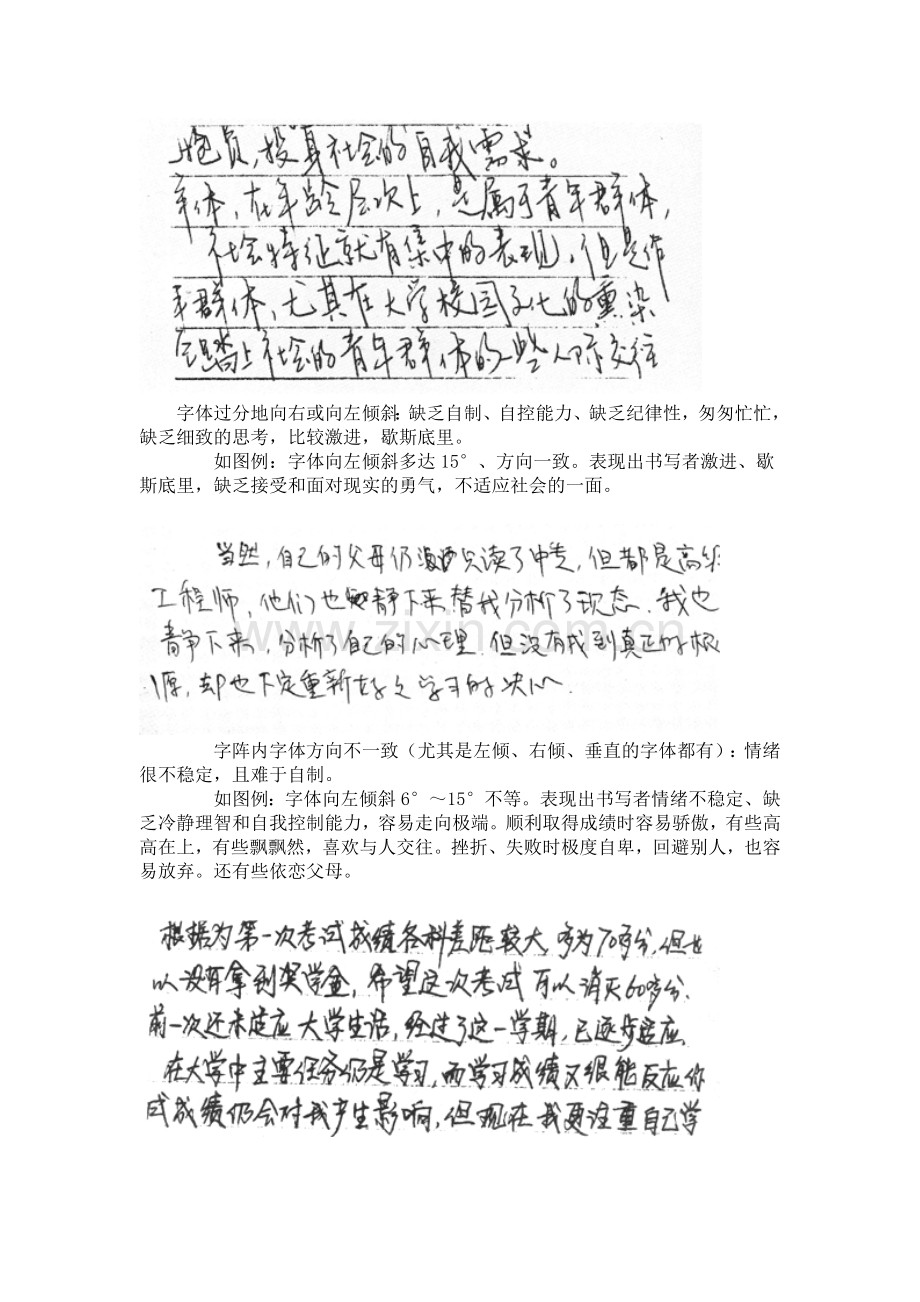 抱负,投身社会的自我需求。
年体,在年龄层次上,是属于青年群体,
社会特征就有集中的表现,但是作
年群体,尤其在大学校园文化的熏染
踏上社会的青年群体的些人际交往
字体过分地向右或向左倾斜:缺乏自制、自控能力、缺乏纪律性,匆匆忙忙,
缺乏细致的思考,比较激进,歇斯底里。
如图例:字体向左倾斜多达15°、方向一致。表现出书写者激进、歇
斯底里,缺乏接受和面对现实的勇气,不适应社会的一面。
当然,自己的父母仍只读了中专,但都是高级
工程师,他们也静下来替我分析了现态.我也
静下来,分析了自己的心理.但没有找到真正的根
源,却也下定重新好好学习的决心.
www.zixin.com.cn
字阵内字体方向不一致(尤其是左倾、右倾、垂直的字体都有):情绪
很不稳定,且难于自制。
如图例:字体向左倾斜6°~15°不等。表现出书写者情绪不稳定、缺
乏冷静理智和自我控制能力,容易走向极端。顺利取得成绩时容易骄傲,有些高
高在上,有些飘飘然,喜欢与人交往。挫折、失败时极度自卑,回避别人,也容
易放弃。还有些依恋父母。
根据为第一次考试成绩各科差距较大,多为70多分,但也
以没有拿到奖学金,希望这次考试可以消灭60多分.
前一次还未适应大学生活,经过了这一学期,已逐步适应.
在大学中主要任务仍是学习,而学习成绩又很能反应你
成绩仍会对我产生影响,但现在我更注重自己学